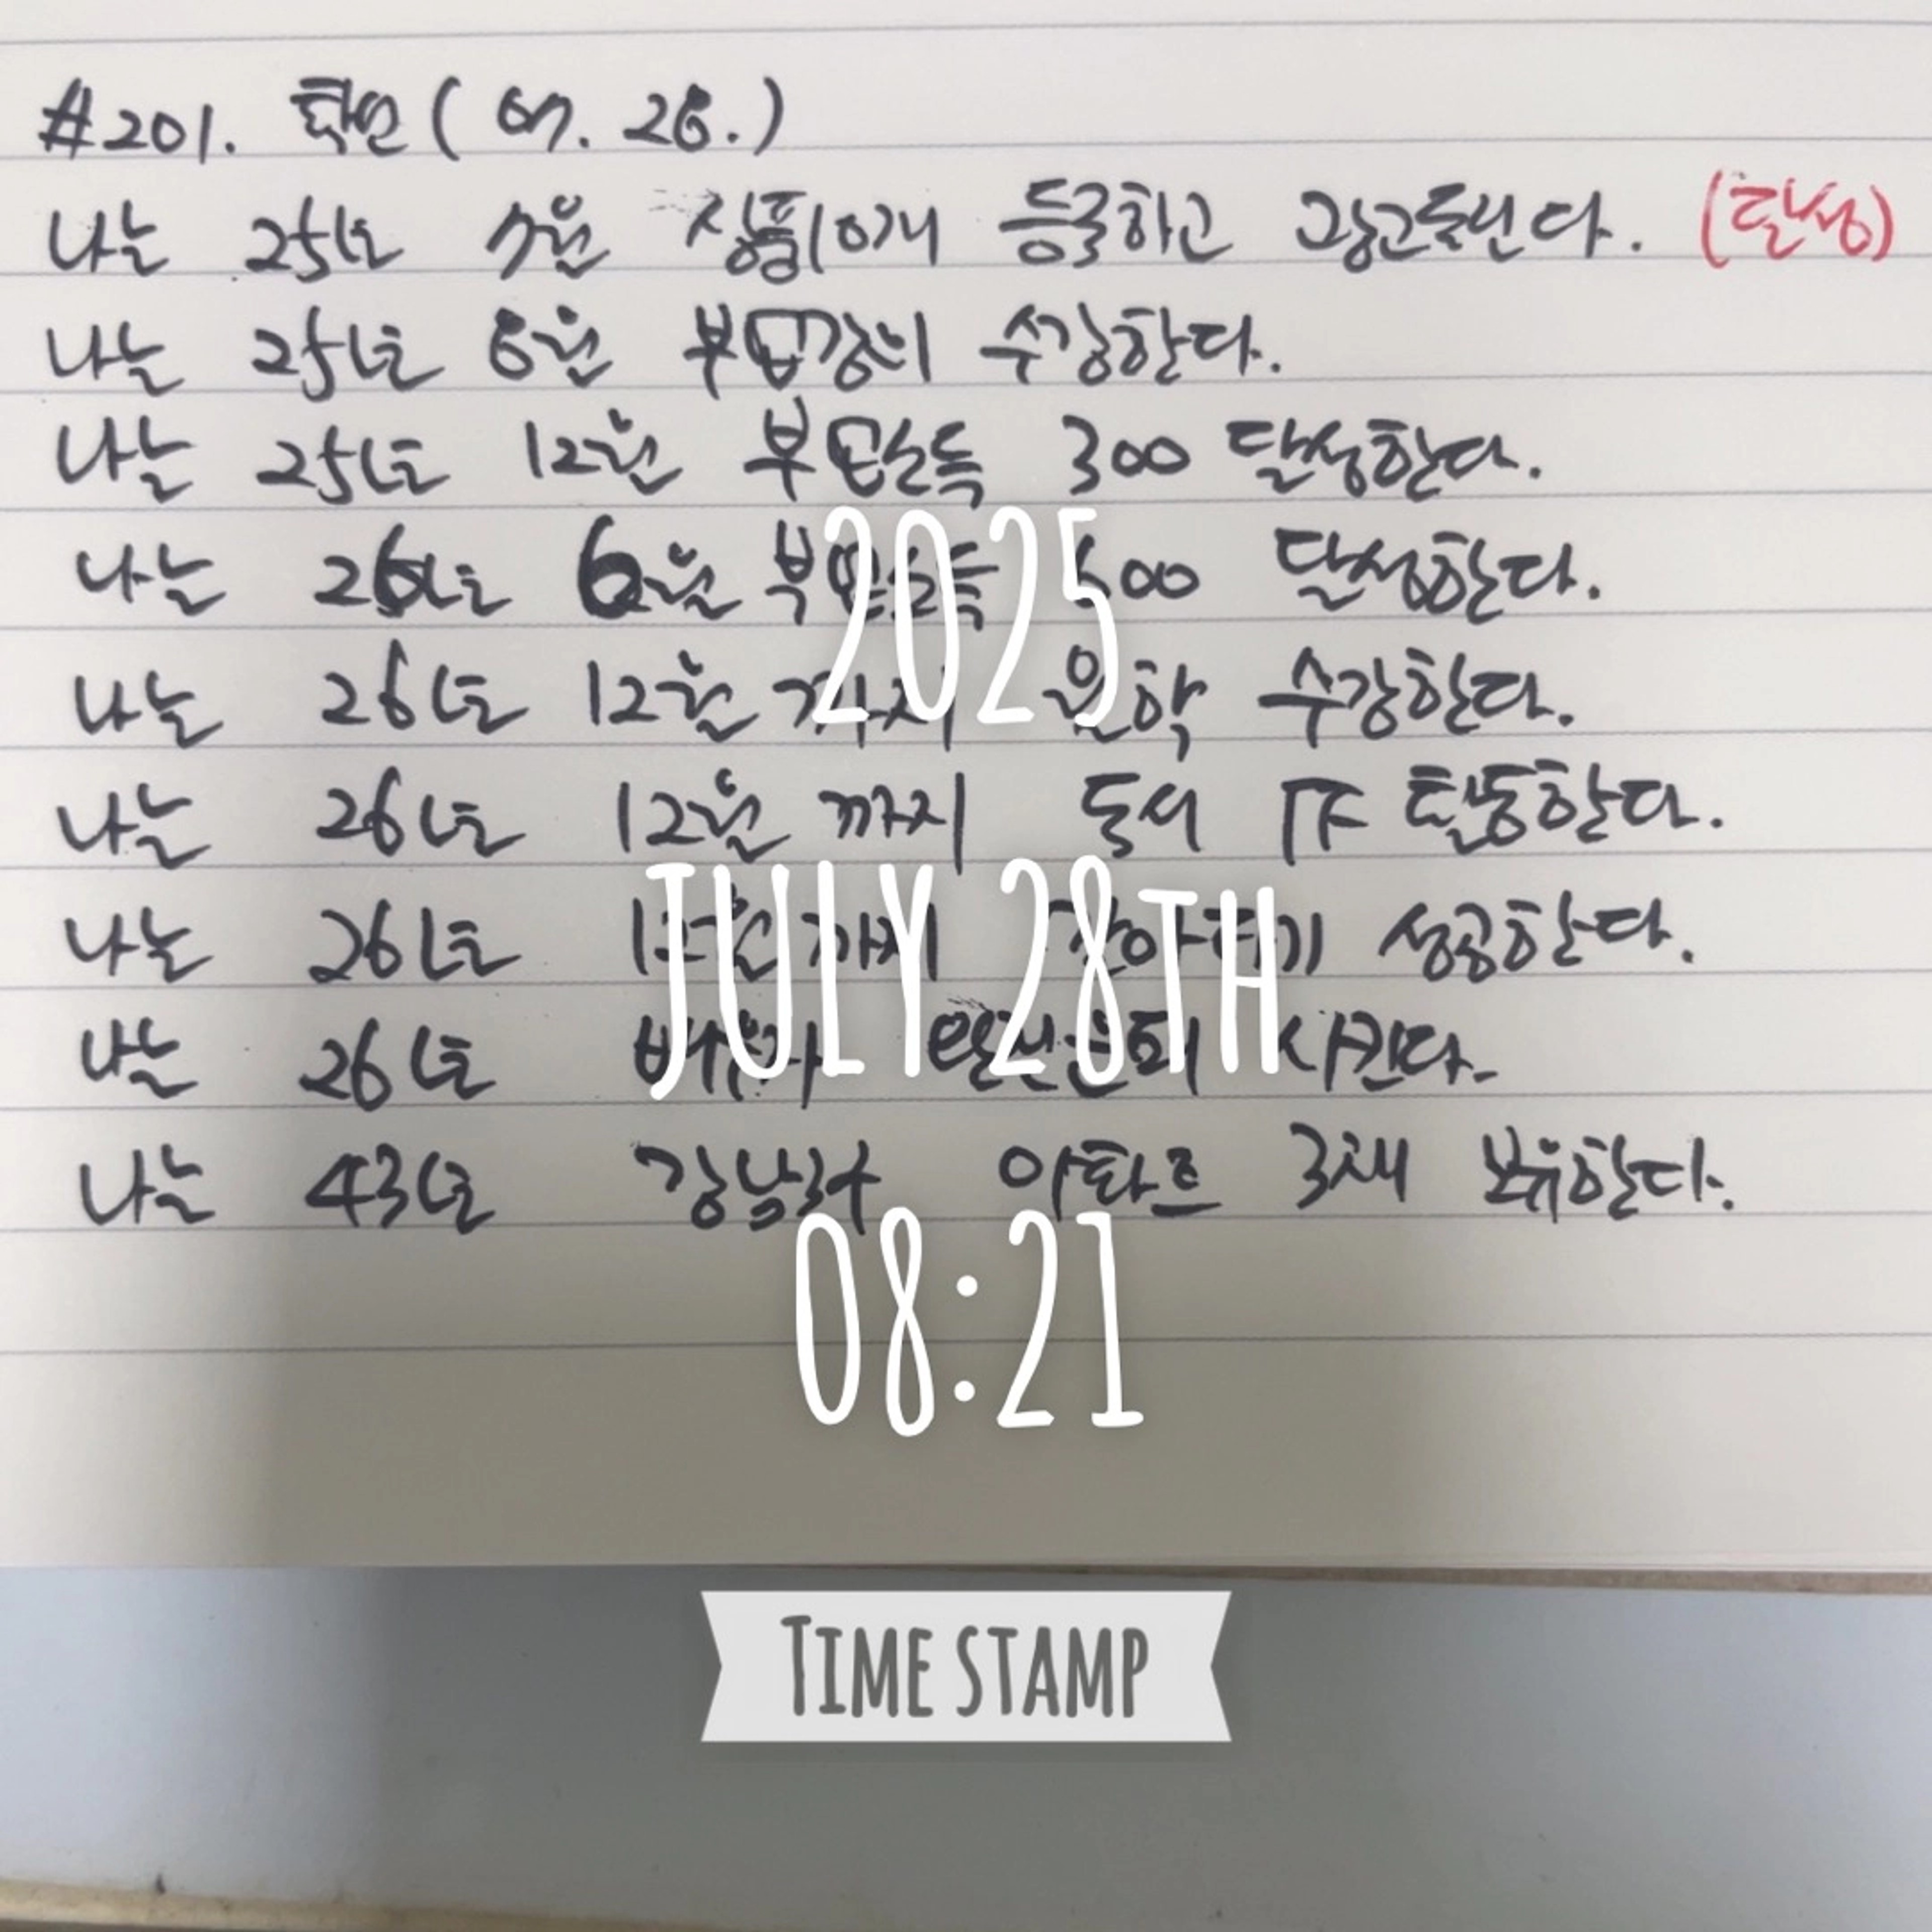 #201. 확언( 07. 28.)
나는 25년 7월 상품10개 등록하고 광고돌린다. (달성)
나는 25년 8월 부업강의 수강한다.
나는 25년 12월 부업소득 300 달성한다.
나는 26년 6월 부업소득 500 달성한다.
나는 26년 12월까지 월학 수강한다.
나는 26년 12월까지 독서 TF 활동한다.
나는 26년 12월까지 갈아타기 성공한다.
나는 26년 배우자 일선은퇴 시킨다.
나는 43년 강남3구 아파트 3채 보유한다.
2025
JULY 28TH
08:21
TIME STAMP